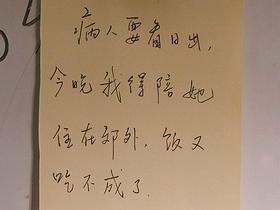 病人要看日出,
今晚我得陪她
住在郊外,饭又
吃不成了.